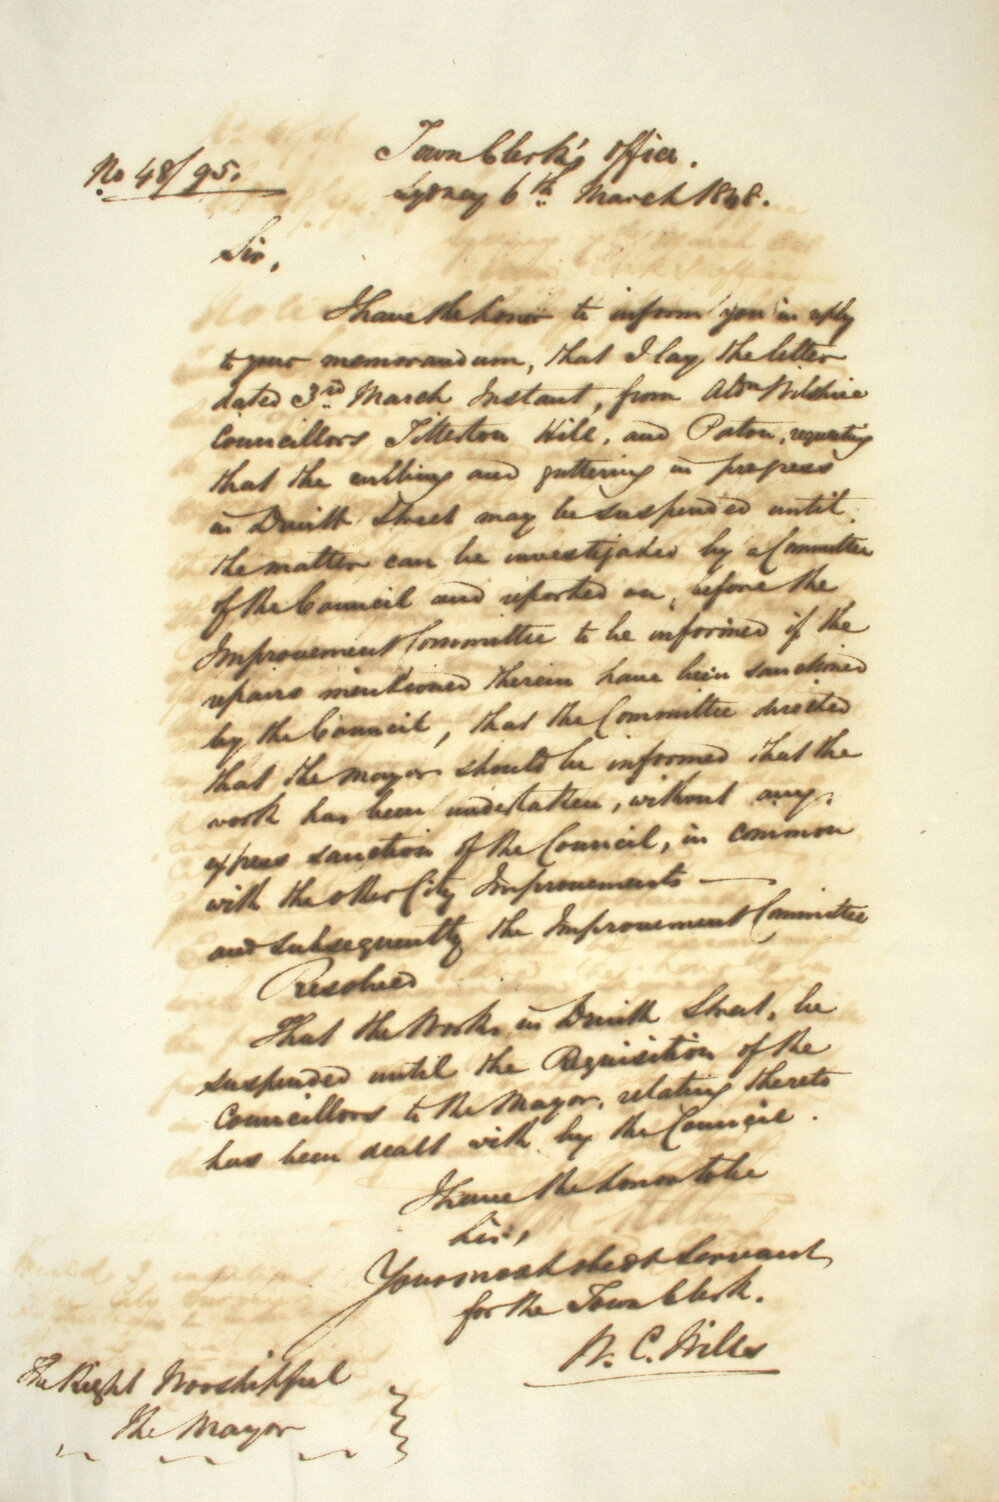 Town Clerk's Office.
No 48/95.
Sydney 6th March 1848.
Sir,
I have the honor to inform you in reply
to your memorandum, that I lay the letter
dated 3rd March Instant, from Aldn Wilshire
Councillors Titterton Hill, and Paton, requesting
that the curbing and guttering in progress
in Druitt Street may be suspended until
the matter can be investigated by a Committee
of the Council and reported on, before the
Improvement Committee to be informed if the
repairs mentioned therein have been sanctioned
by the Council, that the Committee directed
that the Mayor should be informed that the
work has been undertaken, without any
express sanction of the Council, in common
with the other City Improvements —
and subsequently the Improvement Committee
Resolved
That the Works in Druitt Street, be
suspended until the Requisition of the
Councillors to the Mayor, relating thereto
has been dealt with by the Council.
I have the honor to be
Sir,
Your most obedt Servant
for the Town Clerk.
W. C. Wills
The Right Worshipful
The Mayor